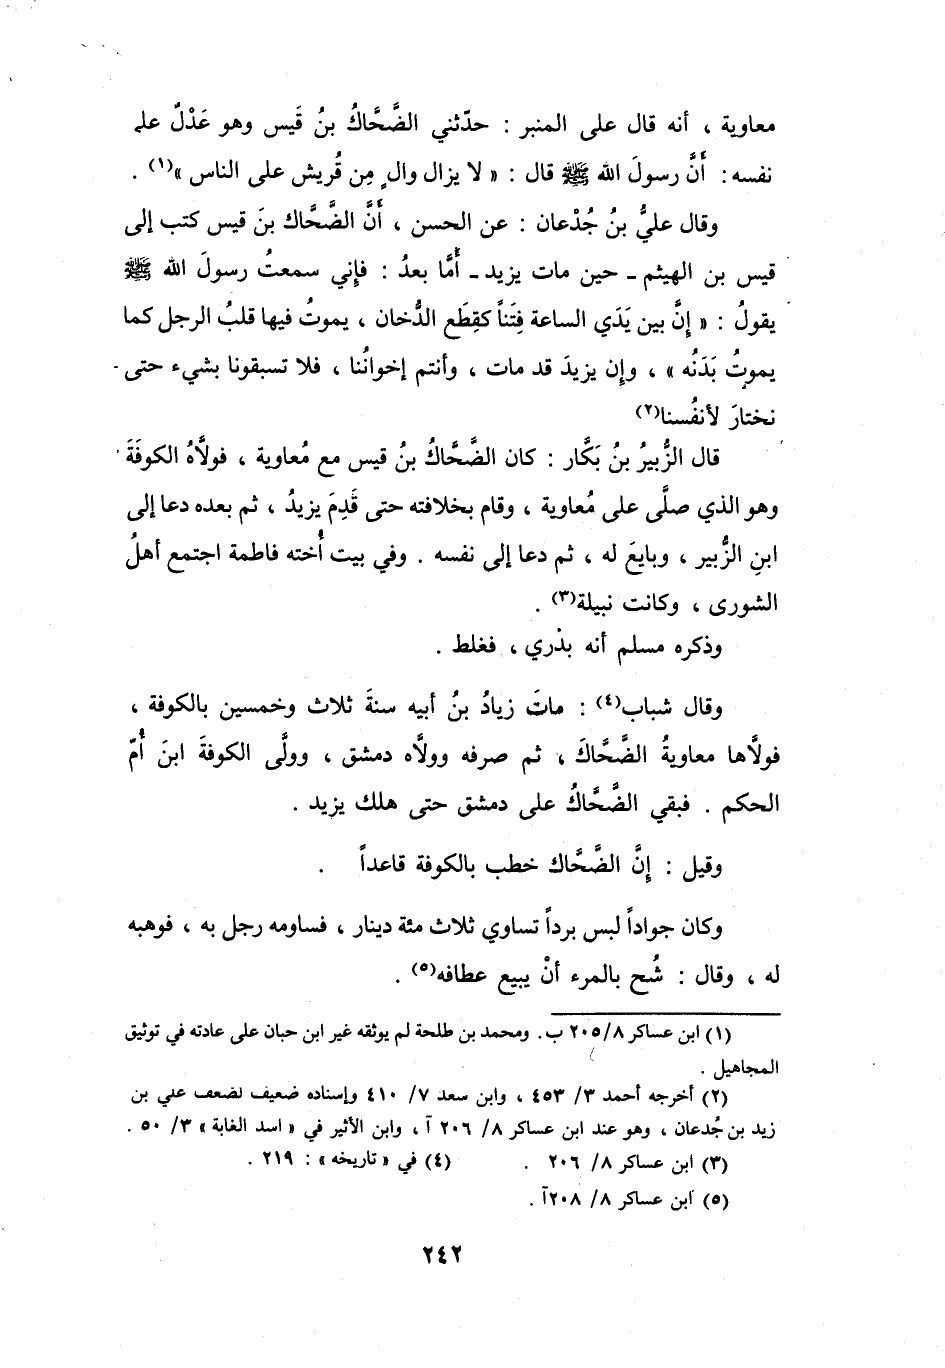 معاوية ، أنه قال على المنبر : حدّثني الضَّحَّاكُ بنُ قَيس وهو عَدْلٌ على
نفسه : أَنَّ رسولَ الله ﷺ قال : « لا يزال والٍ مِن قُريش على الناس »(١) .
وقال عليُّ بنُ جُدْعان : عن الحسن ، أَنَّ الضَّحَّاك بنَ قيس كتب إلى
قيس بن الهيثم ـ حين مات يزيد ـ أَمَّا بعدُ : فإني سمعتُ رسولَ الله ﷺ
يقولُ : « إنَّ بين يَدَي الساعة فِتَناً كقِطَع الدُّخان ، يموتُ فيها قلبُ الرجل كما
يموتُ بَدَنُه » ، وإن يزيدَ قد مات ، وأنتم إخوانُنا ، فلا تسبقونا بشيء حتى
نختارَ لأنفُسنا(٢)
قال الزُّبيرُ بنُ بَكَّار : كان الضَّحَّاكُ بنُ قيس مع مُعاوية ، فولَّاهُ الكوفَةَ
وهو الذي صلَّى على مُعاوية ، وقام بخلافته حتى قَدِمَ يزيدُ ، ثم بعده دعا إلى
ابنِ الزُّبير ، وبايعَ له ، ثم دعا إلى نفسه . وفي بيت أُخته فاطمة اجتمع أهلُ
الشورى ، وكانت نبيلة(٣) .
وذكره مسلم أنه بدْري ، فغلط .
وقال شباب(٤) : ماتَ زيادُ بنُ أبيه سنةَ ثلاث وخمسين بالكوفة ،
فولَّاها معاويةُ الضَّحَّاكَ ، ثم صرفه وولاَّه دمشق ، وولَّى الكوفةَ ابنَ أُمّ
الحكم . فبقي الضَّحَّاكُ على دمشق حتى هلك يزيد .
وقيل : إنَّ الضَّحَّاك خطب بالكوفة قاعداً .
وكان جواداً لبس برداً تساوي ثلاث مئة دينار ، فساومه رجل به ، فوهبه
له ، وقال : شُح بالمرء أنْ يبيع عطافه(٥) .
(١) ابن عساكر ٨/ ٢٠٥ ب . ومحمد بن طلحة لم يوثقه غير ابن حبان على عادته في توثيق
المجاهيل .
(٢) أخرجه أحمد ٣/ ٤٥٣ ، وابن سعد ٧/ ٤١٠ وإسناده ضعيف لضعف علي بن
زيد بن جُدعان ، وهو عند ابن عساكر ٨/ ٢٠٦ آ ، وابن الأثير في « اسد الغابة » ٣/ ٥٠ .
(٣) ابن عساكر ٨/ ٢٠٦ . (٤) في « تاريخه » : ٢١٩ .
(٥) ابن عساكر ٨/ ٢٠٨آ .
٢٤٢